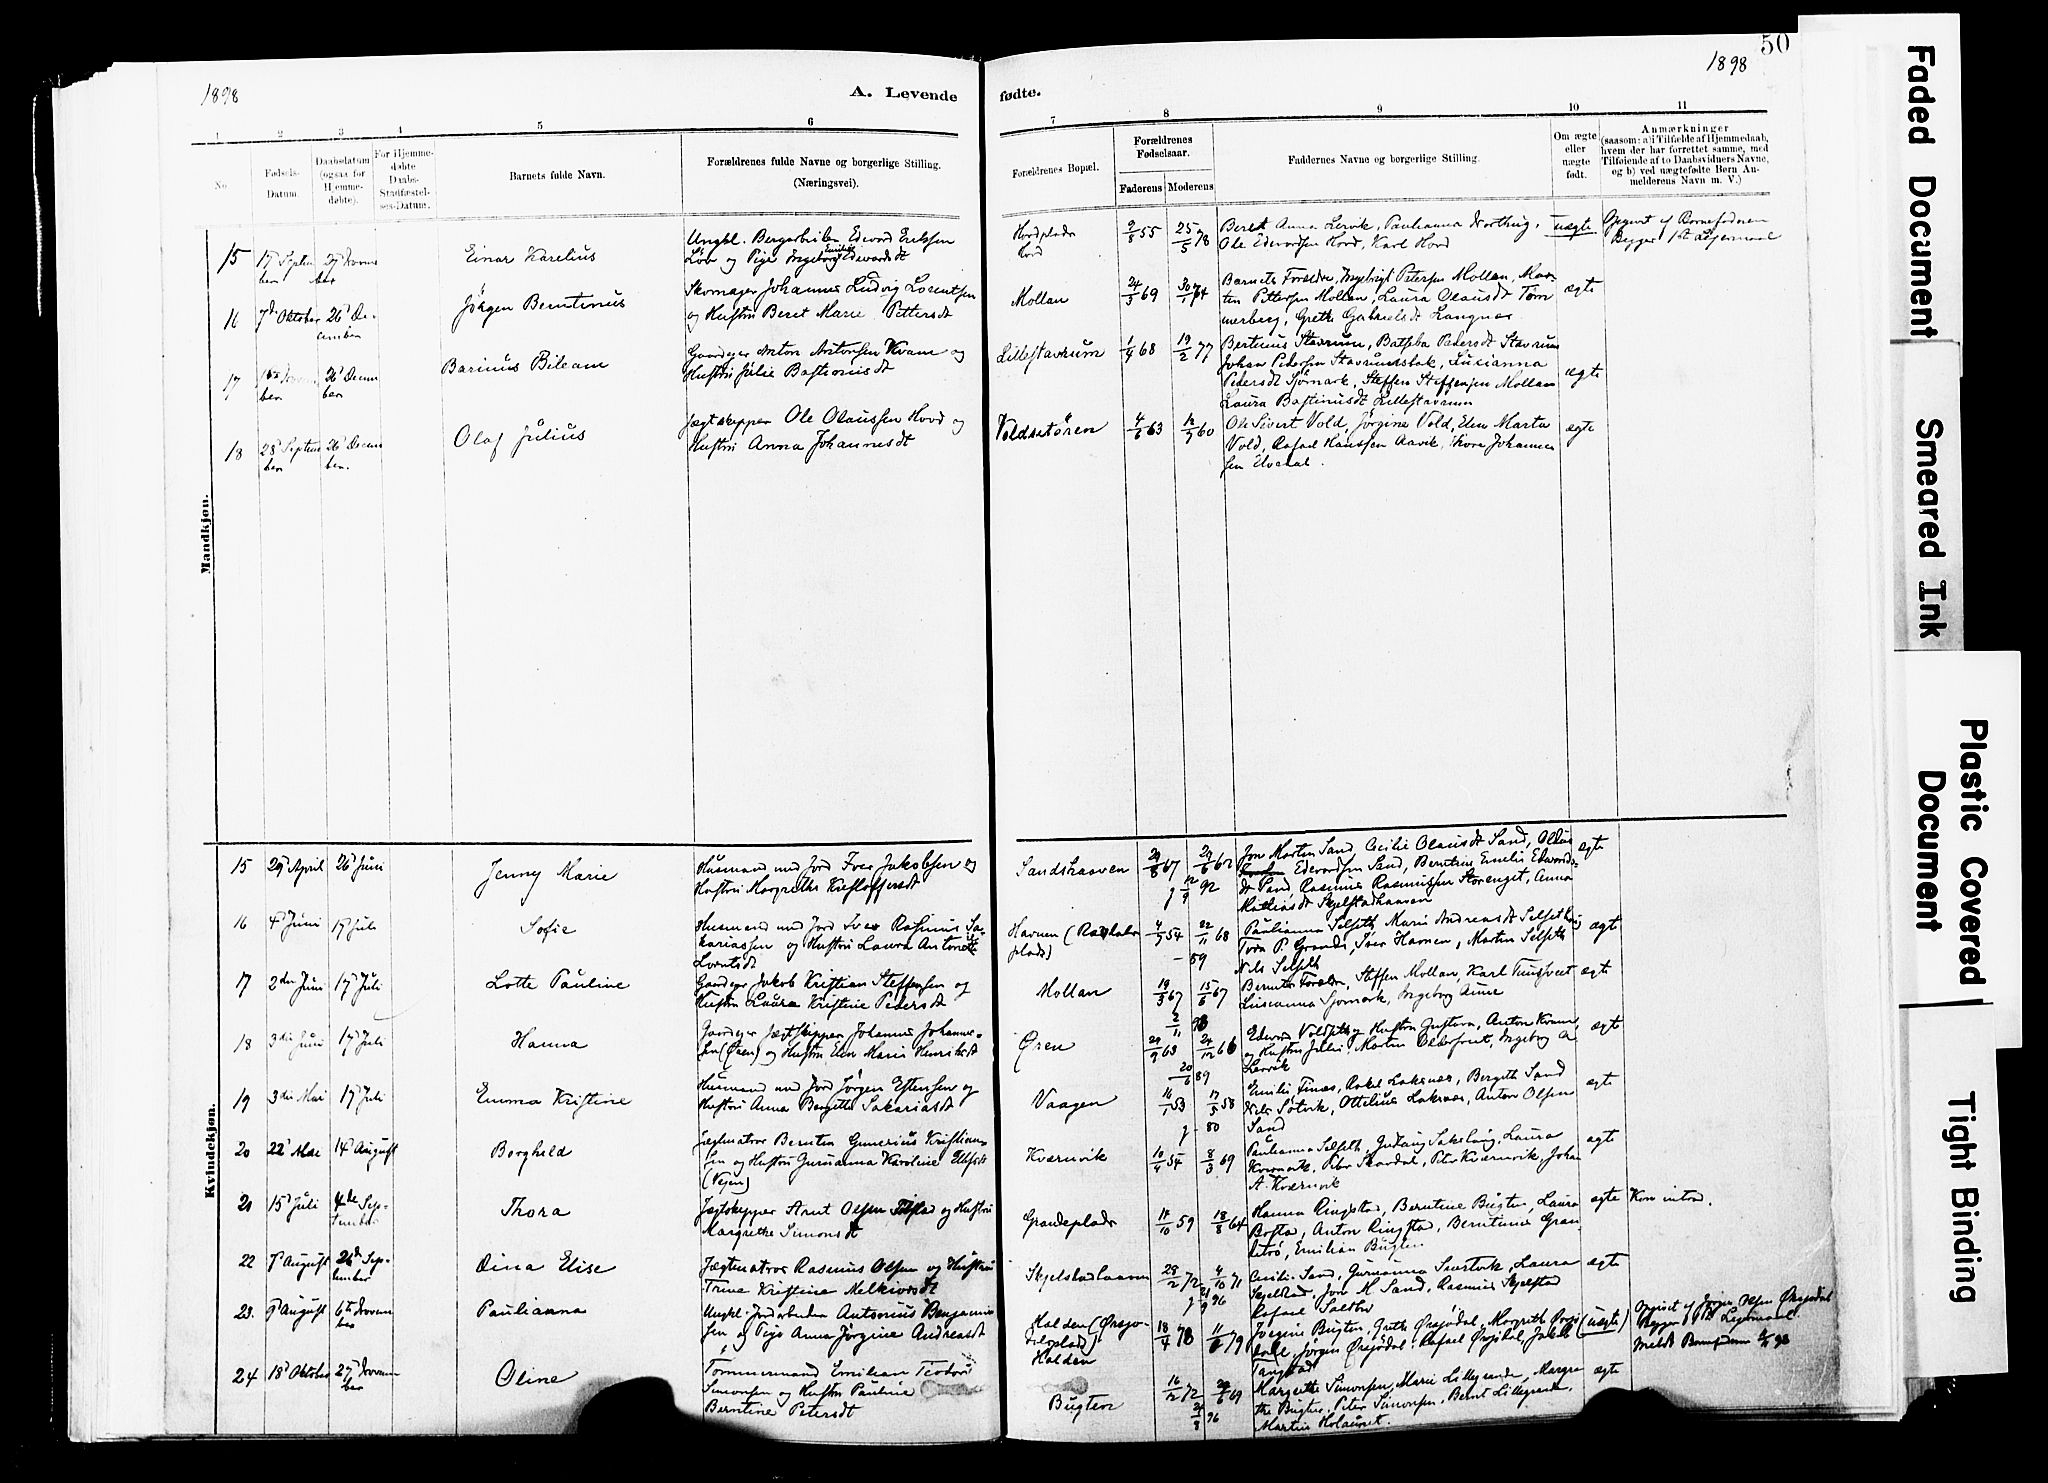 1898
A. Levende
fødte.
1898
50
1 2 3 4 5 6 7 8 9 10 11
No
Fødsels-
Datum.
Daabsdatum
(ogsaa for
Hjemme-
døbte).
For Hjemme-
døbte
Daabs-
Stadfæstel-
ses-Datum.
Barnets fulde Navn.
Forældrenes fulde Navne og borgerlige Stilling.
(Næringsvei).
Forældrenes Bopæl.
Forældrenes
Fødselsaar.
Faderens Moderens
Faddernes Navne og borgerlige Stilling.
Om ægte
eller
uægte
født.
Anmærkninger
(saasom: a) i Tilfælde af Hjemmedaab,
hvem der har forrettet samme, med
Tilføiende af to Daabsvidners Navne,
og b) ved uægtefødte Børn An-
melderens Navn m. V.)
Mandkjøn.
15
17 Septem
ber
27 Novem
ber
Einar Karelius
Ungkl. Bergarbeider Edvard Eriksen
Løv og Pige Ingeborg Emilie Edvardsdt
Hovdplads
Hovd
9/8 55
25/5 78
Beret Anna Lervik, Paulianna
Ole Edvardsen Hovd, Karl Hovd
uægte
Opgivet af Barnefaderen
Begges 1ste Leiermaal
16
7de Oktober
26 De-
cember
Jörgen Berntinus
Skomager Johannes Ludvig Lorentsen
og Hustru Beret Marie Pettersdt
Mollan
24/3 69
Barnets Forældre, Ingebrigt Petersen Mollan, Mor-
ten Pettersen Mollan, Laura Olausdt Tøm
merberg, Grethe Gabrielsdt Langnes
ægte
17
26 Decem
ber
Barinus Bileam
Gaardeier Anton Antonsen Kvam og
Hustru Julie Bastianusdt
Lillestavrum
1/4 68
19/2 77
Bertinus Stavrum, Batseba Pedersdt Stavrum
Johan Pedersen Stavrundsbak, Lusianna
Pedersdt Sjømark, Steffen Steffensen Mollan
Laura Bastinusdt Lillestavrum
ægte
18
28 Septem
ber
26 Decem
ber.
Olaf Julius
Jægtskipper Ole Olaussen Hovd og
Hustru Anna Johannesdt
Voldsætøren
4/6 63
12/9 60
Ole Sivert Vold, Jørgine Vold, Elen Marta
Vold, Rafael Hanssen Aavik, Johannes
sen
ægte
Kvindekjøn.
15
29 April
26 Juni
Jenny Marie
Husmand med Jord Iver Jakobsen og
Hustru Margrethe Kristoffersdt
Sandshaaven
29/8 67
29/6 62
92
Jon Martin Sand, Cecilie Olausdt Sand,
Edvardsen Sand, Berntine Emelie Edvards-
dt Sand Rasmus Rasmussen Storenget, Anna
Mathiasdt Skjelstadhaaven
ægte
16
4 Juni
17 Juli
Sofie
Husmand med Jord Iver Rasmus Sa-
kariassen og Hustru Laura Antonette
Lorntsdt
Havnen
plads)
4/9 54
22/11 68
– 59
Paulianna Selseth, Marie Andreasdt
Tora P. Grande, Iver Havnen, Martin Selseth
Nils Selseth
ægte
17
2den Juni
17 Juli
Lotte Pauline
Gaardeier Jakob Kristian Steffensen og
Hustru Laura Kristine Pedersdt
Mollan
19/3 67
15/6 67
Barnets Forældre, Steffen Mollan, Karl
Lusianna Sjømark, Ingeborg Aune
ægte
18
3die Juni
17 Juli
Hanna
Gaardeier Jægtskipper Johannes Johannes-
sen (Øren) og Hustru Elen Marie Henriksdt
Øren
29/9 63
24/12 66
20/6 89
Edvard Voldseth og Hustru Gustava, Anton Kvam,
og Hustru Julie, Martin Ingeborg A
Lervik
ægte
19
3die Mai
17 Juli
Emma Kristine
Husmand med Jord Jørgen Estensen og
Hustru Anna Bergette Sakariasdt
Vaagen
16/1 53
17/5 58
80
Emilie Finnes, Rakel Laksnes, Bergeth Sand
Nils Sætvik, Ottelius Laksnes, Anton Olsen
Sand
ægte
20
22 Mai
14 August
Borghild
Jægtmatros Berntin Gunerius Kristian-
sen og Hustru Gurianna Karoline
(Vejen)
Kværnvik
10/4 54
8/3 69
Paulianna Selseth, Laura
Kværnvik, Peter Skavdal, Peter Kværnvik, Johan
A. Kværnvik
ægte
21
15 Juli
4de Sep-
tember
Thora
Jægtskipper Arnt Olsen og Hustru
Margrethe Simonsdt
Grandeplads
14/10 59
18/8 64
Hanna Ringstad, Berntine Bugten, Laura
Anton Ringstad, Berntinus Gran-
Emilian Bugten
ægte
Kon introd.
22
7 August
Sep-
tember
Dina Elise
Jægtmatros Rasmus Olsen og Hustru
Trine Kristine Melkiorsdt
Skjelstadhaaven
28/2 72
4/10 71
96
Cecilie Sand, Gurianna Laura
Skjelstad, Jon M Sand, Rasmus Skjelstad
Rafael
ægte
23.
August
6te Novem
ber
Paulianna
Ungkl. Jordarbeider Antonius Benjamin
sen og Pige Anna Jørgine Andreasdt
Halden (Ørsjø-
dalsplads)
Halden
18/4 78
79
Joegine Bugten, Grethe Ørsjødal, Margreth Ørsjø
dal, Jørgen Ørsjødal, Rafael Ørsjødal, Jakob
Tangstad
(uægte)
Opgivet af Olsen Ørsjødal
Begges 1ste Leiermaal
24
18 Oktober
27 Novem
ber
Oline
Tømmermand Emilian Teodor
Simonsen og Hustru Pauline
Berntine Petersdt
Bugten
16/12 72
69
96
Margrethe Simonsen, Marie Lillegrande, Margre
the Bugten, Peter Simonsen, Bernt Lillegrande,
Martin
ægte
Faded Document
Smeared Ink
Plastic Covered
Document
Tight Binding